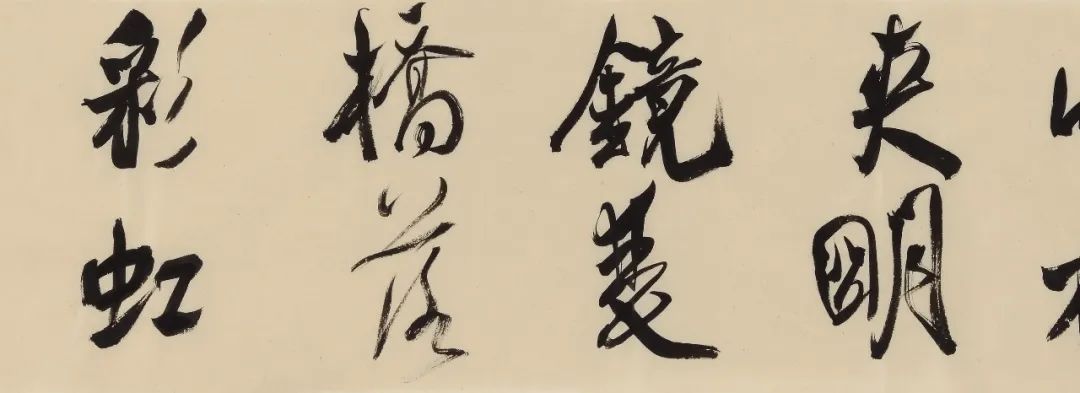 夾明
鏡雙
橋落
彩虹